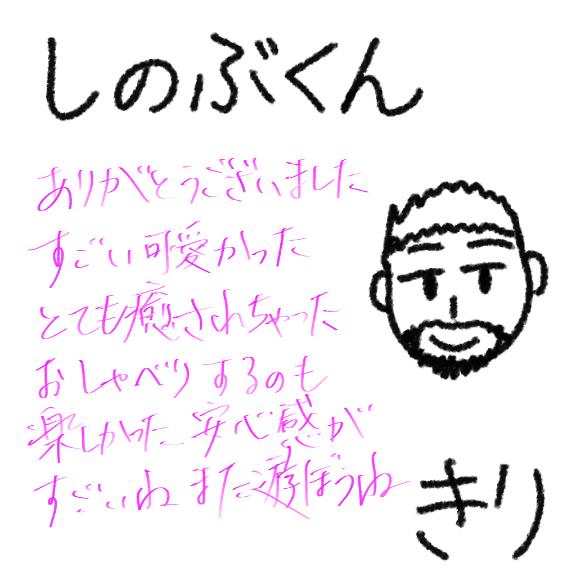 しのぶくん
ありがとうございました
すごい可愛かった
とても癒されちゃった
おしゃべりするのも
楽しかった 安心感が
すごいね また遊ぼうね
きり